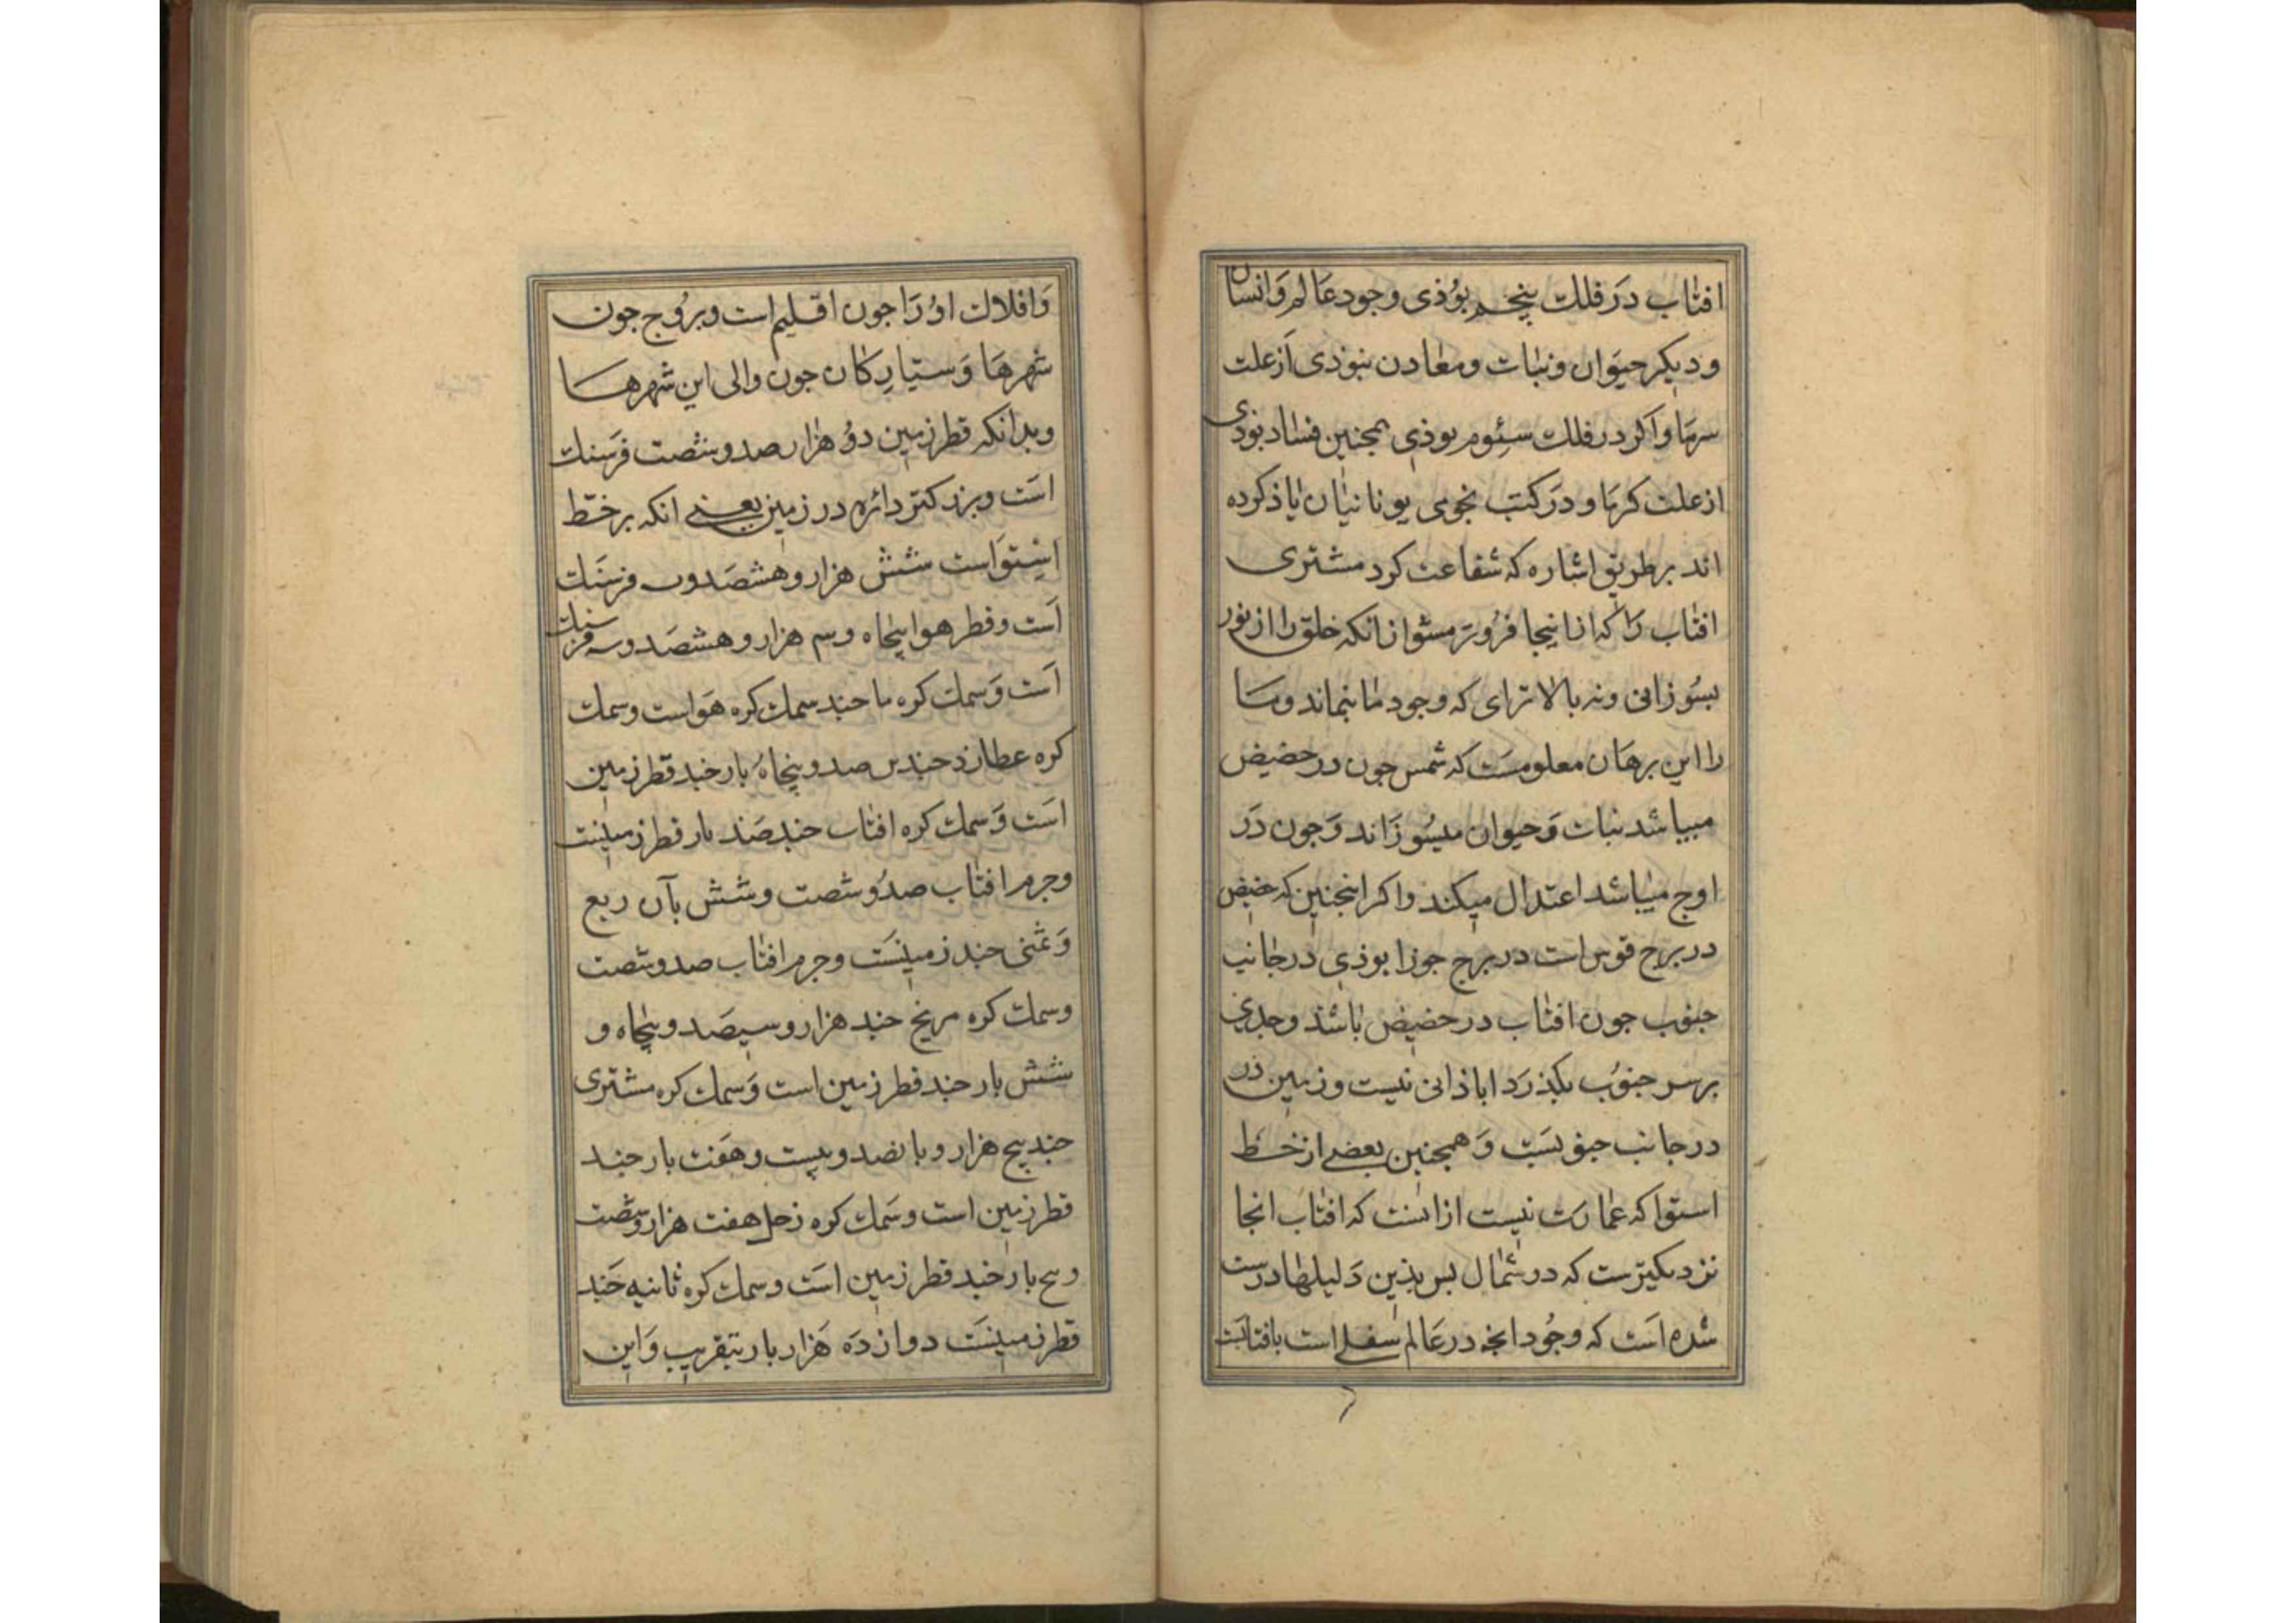 افتاب در فلك پنجم بوذی وجود عالم وانسان
و دیکر حیوان ونبات ومعادن نبوذی از علت
سرما واکر در فلك سئوم بوذی همجنین فساد بوذی
از علت کرما و در کتب نجومی یونانیان یاذ کرده
اند بر طریق اشاره که شفاعت کرد مشتری
افتاب را که از اینجا فروتر مشو از انکه خلق را از نور
بسوزانی ونه بالاتر ای که وجود ما نماند وما
را این برهان معلومست که شمس جون در حضیض
میباشد نبات وحیوان میسوزاند وجون در
اوج میباشد اعتدال میکند واکر اینجنین که حضیض
در برج قوس است در برج جوزا بوذی در جانب
جنوب جون افتاب در حضیض باشذ وجدی
بر سر جنوب بکذرد اباذانی نیست وزمین در
در جانب جنوبست وهمجنین بعضی از خط
استوا که عمارت نیست از انست که افتاب انجا
نزدیکترست که در شمال بس بذین دلیلها درست
شده است که وجود انجه در عالم سفلی است بافتابست
وافلاك او را جون اقلیم است وبروج جون
شهرها وسیارکان جون والی این شهرها
وبدانکه قطر زمین دو هزار صد وشصت فرسنك
است وبزرکتر دائره در زمین یعنی انکه بر خط
استواست شش هزار وهشصد فرسنك
است وقطر هوا پنجاه وسه هزار وهشصد وسه فرسنك
است وسمك کره ما جند سمك کره هواست وسمك
کره عطارذ جندین صد وپنجاه بار جند قطر زمین
است وسمك کره افتاب جند صذ بار قطر زمینست
وجرم افتاب صد وشصت وشش بار ربع
وثمنی جند زمینست وجرم افتاب صد وشصت
وسمك کره مریخ جند هزار وسیصد وپنجاه و
شش بار جند قطر زمین است وسمك کره مشتری
جند پنج هزار وبانصد وبیست وهفت بار جند
قطر زمین است وسمك کره زحل هفت هزار وشصت
وپنج بار جند قطر زمین است وسمك کره ثانیه جند
قطر زمینست دوازده هزار بار بتقریب واین